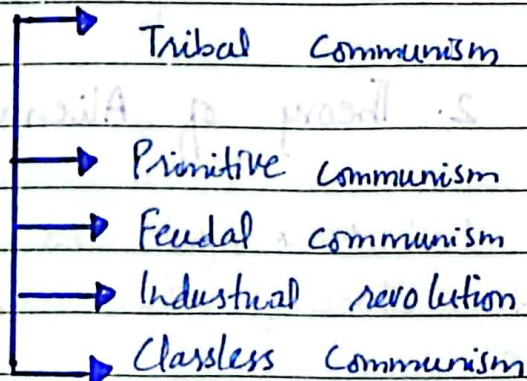 Tribal Communism
2. Theory of
Primitive Communism
Feudal Communism
Industrial revolution
Classless Communism